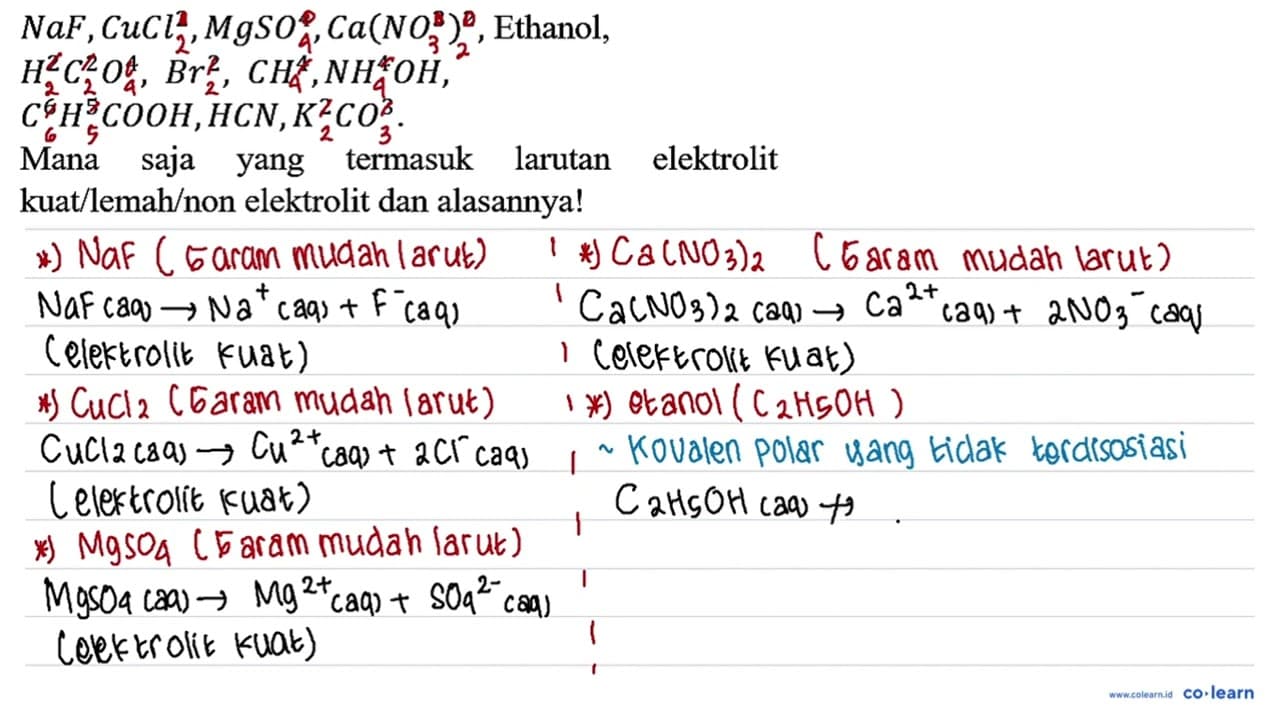 NaF, CuCl₂, MgSO₄, Ca(NO₃)₂, Ethanol,
H₂C₂O₄, Br₂, CH₄, NH₄OH,
C₆H₅COOH, HCN, K₂CO₃.
Mana saja yang termasuk larutan elektrolit
kuat/lemah/non elektrolit dan alasannya!
*) NaF (Garam mudah larut)
NaF (aq) → Na⁺ (aq) + F⁻ (aq)
(elektrolit kuat)
*) CuCl₂ (Garam mudah larut)
CuCl₂ (aq) → Cu²⁺ (aq) + 2Cl⁻ (aq)
(elektrolit kuat)
*) MgSO₄ (Garam mudah larut)
MgSO₄ (aq) → Mg²⁺ (aq) + SO₄²⁻ (aq)
(elektrolit kuat)
*) Ca(NO₃)₂ (Garam mudah larut)
Ca(NO₃)₂ (aq) → Ca²⁺ (aq) + 2NO₃⁻ (aq)
(elektrolit kuat)
*) etanol (C₂H₅OH)
~ Kovalen polar yang tidak terdisosiasi
C₂H₅OH (aq) ↛
www.colearn.id co·learn